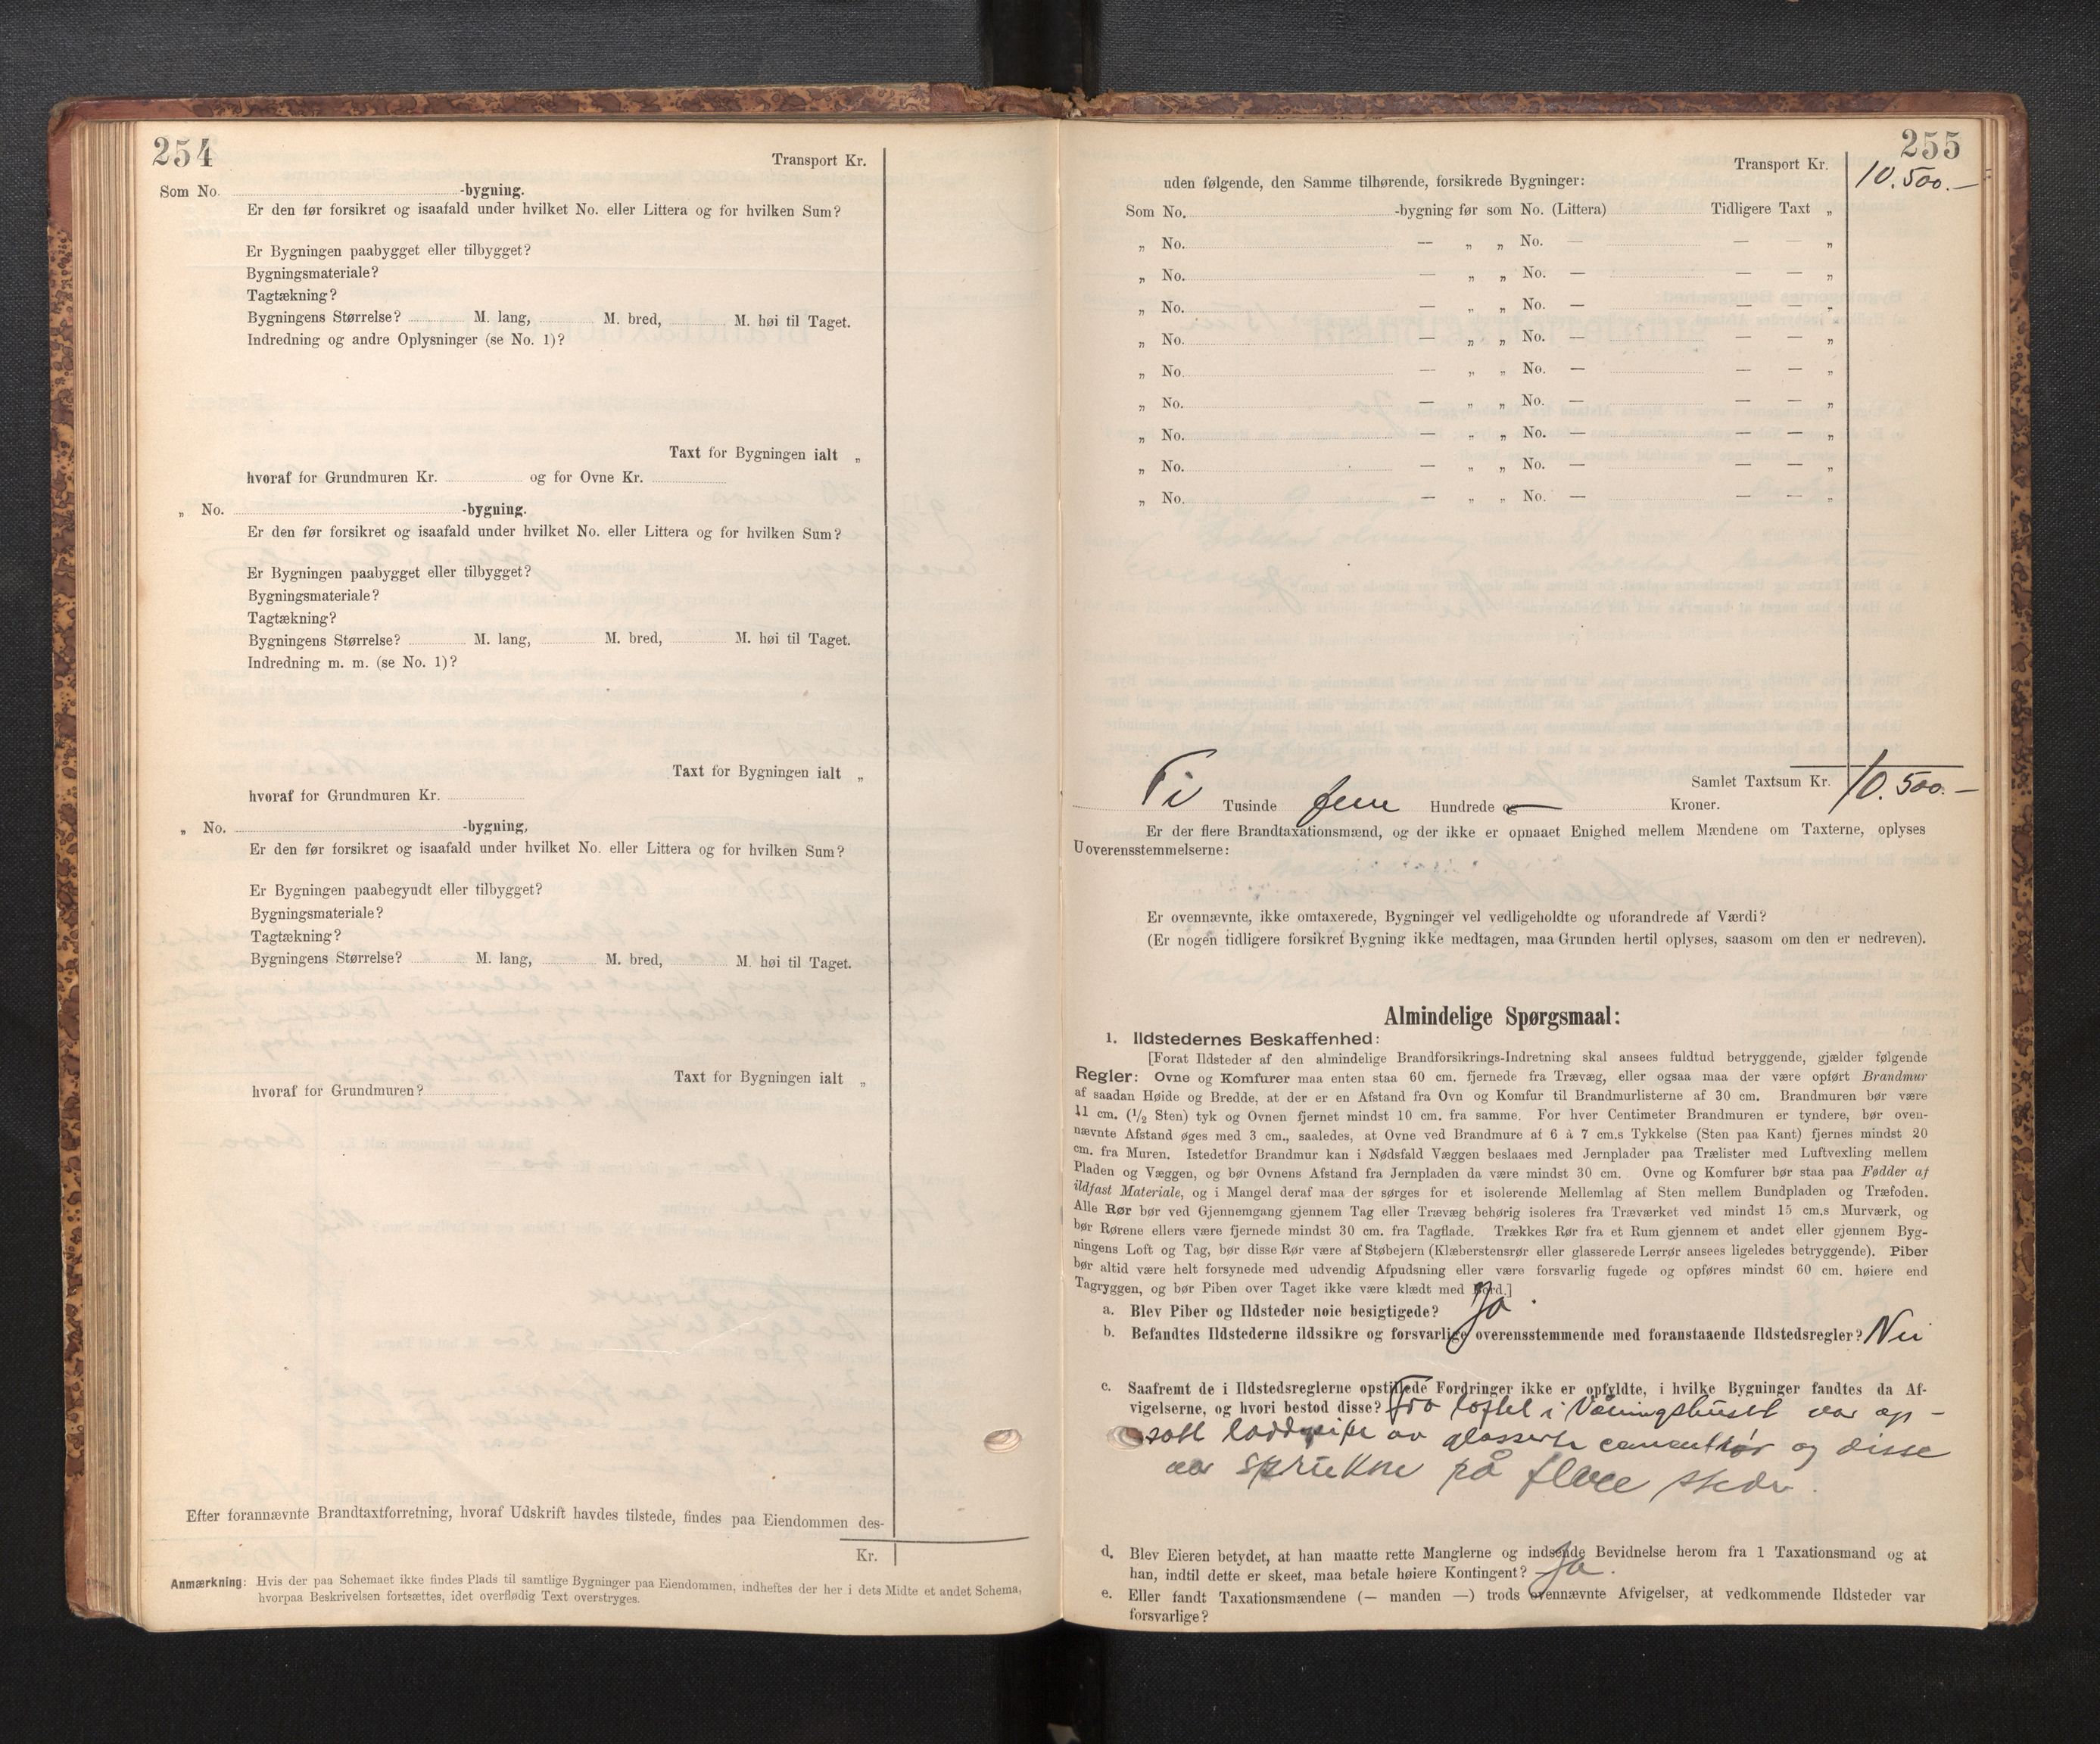 254
Transport Kr.
Som No. -bygning.
Er den før forsikret og isaafald under hvilket No. eller Littera og for hvilken Sum?
Er Bygningen paabygget eller tilbygget?
Bygningsmateriale?
Tagtækning?
Bygningens Størrelse? M. lang, M. bred, M. høi til Taget.
Indredning og andre Oplysninger (se No. 1)?
Taxt for Bygningen ialt „
hvoraf for Grundmuren Kr. og for Ovne Kr.
„ No. -bygning.
Er den før forsikret og isaafald under hvilket No. eller Littera og for hvilken Sum?
Er Bygningen paabygget eller tilbygget?
Bygningsmateriale?
Tagtækning?
Bygningens Størrelse? M. lang, M. bred, M. høi til Taget.
Indredning m. m. (se No. 1)?
Taxt for Bygningen ialt „
hvoraf for Grundmuren Kr.
„ No. -bygning,
Er den før forsikret og isaafald under hvilket No. eller Littera og for hvilken Sum?
Er Bygningen paabegyndt eller tilbygget?
Bygningsmateriale?
Tagtækning?
Bygningens Størrelse? M. lang, M. bred, M. høi til Taget.
Taxt for Bygningen ialt „
hvoraf for Grundmuren?
Efter forannævnte Brandtaxtforretning, hvoraf Udskrift havdes tilstede, findes paa Eiendommen des-
Kr.
Anmærkning: Hvis der paa Schemaet ikke findes Plads til samtlige Bygninger paa Eiendommen, indheftes der her i dets Midte et andet Schema,
hvorpaa Beskrivelsen fortsættes, idet overflødig Text overstryges.
255
Transport Kr. 10.500.—
uden følgende, den Samme tilhørende, forsikrede Bygninger:
Som No. -bygning før som No. (Littera) Tidligere Taxt „
„ No. — „ „ No. — — — „
„ No. — „ „ No. — — — „
„ No. — „ „ No. — — — „
„ No. — „ „ No. — — — „
„ No. — „ „ No. — — — „
„ No. — „ „ No. — — — „
„ No. — „ „ No. — — — „
„ No. — „ „ No. — — — „
„ No. — „ „ No. — — — „
Samlet Taxtsum Kr. 10.500.—
Ti Tusinde fem Hundrede og Kroner.
Er der flere Brandtaxationsmænd, og der ikke er opnaaet Enighed mellem Mændene om Taxterne, oplyses
Uoverensstemmelserne:
Er ovennævnte, ikke omtaxerede, Bygninger vel vedligeholdte og uforandrede af Værdi?
(Er nogen tidligere forsikret Bygning ikke medtagen, maa Grunden hertil oplyses, saasom om den er nedreven).
Almindelige Spørgsmaal:
1. Ildstedernes Beskaffenhed:
[Forat Ildsteder af den almindelige Brandforsikrings-Indretning skal ansees fuldtud betryggende, gjælder følgende
Regler: Ovne og Komfurer maa enten staa 60 cm. fjernede fra Trævæg, eller ogsaa maa der være opført Brandmur
af saadan Høide og Bredde, at der er en Afstand fra Ovn og Komfur til Brandmurlisterne af 30 cm. Brandmuren bør være
11 cm. (1/2 Sten) tyk og Ovnen fjernet mindst 10 cm. fra samme. For hver Centimeter Brandmuren er tyndere, bør oven-
nævnte Afstand øges med 3 cm., saaledes, at Ovne ved Brandmure af 6 à 7 cm.s Tykkelse (Sten paa Kant) fjernes mindst 20
cm. fra Muren. Istedetfor Brandmur kan i Nødsfald Væggen beslaaes med Jernplader paa Trælister med Luftvexling mellem
Pladen og Væggen, og bør Ovnens Afstand fra Jernpladen da være mindst 30 cm. Ovne og Komfurer bør staa paa Fødder af
ildfast Materiale, og i Mangel deraf maa der sørges for et isolerende Mellemlag af Sten mellem Bundpladen og Træfoden.
Alle Rør bør ved Gjennemgang gjennem Tag eller Trævæg behørig isoleres fra Træværket ved mindst 15 cm.s Murværk, og
bør Rørene ellers være fjernede mindst 30 cm. fra Tagflade. Trækkes Rør fra et Rum gjennem et andet eller gjennem Byg-
ningens Loft og Tag, bør disse Rør være af Støbejern (Klæberstensrør eller glasserede Lerrør ansees ligeledes betryggende). Piber
bør altid være helt forsynede med udvendig Afpudsning eller være forsvarlig fugede og opføres mindst 60 cm. høiere end
Tagryggen, og bør Piben over Taget ikke være klædt med Bord.]
a. Blev Piber og Ildsteder nøie besigtigede? Ja.
b. Befandtes Ildstederne ildssikre og forsvarlige overensstemmende med foranstaaende Ildstedsregler? Nei
c. Saafremt de i Ildstedsreglerne opstillede Fordringer ikke er opfyldte, i hvilke Bygninger fandtes da Af-
vigelserne, og hvori bestod disse? Fra loftet i Våningshuset var op-
satt loddpipe av glasserte cementrør og disse
var sprukne på flere steder.
d. Blev Eieren betydet, at han maatte rette Manglerne og indsende Bevidnelse herom fra 1 Taxationsmand og at
han, indtil dette er skeet, maa betale høiere Kontingent? Ja.
e. Eller fandt Taxationsmændene (— manden —) trods ovennævnte Afvigelser, at vedkommende Ildsteder var
forsvarlige?